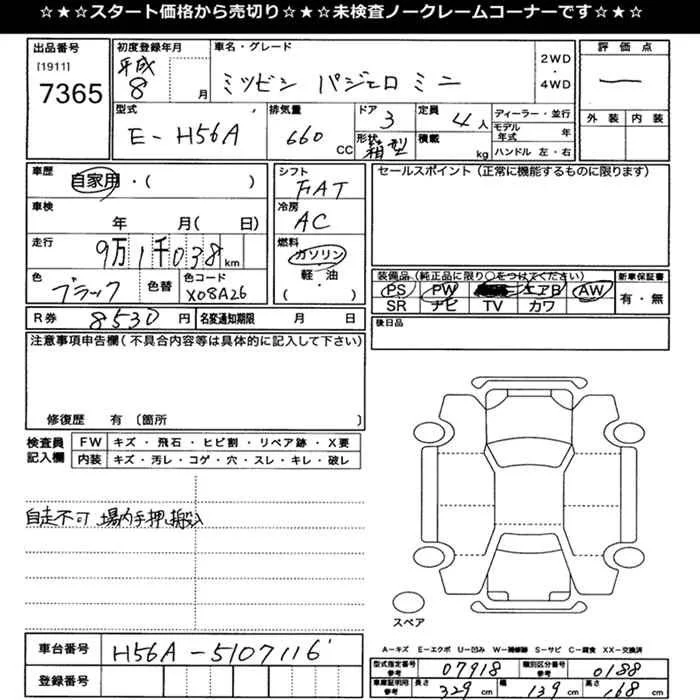 ☆★☆★スタート価格から売切り☆★☆★未検査ノークレームコーナーです☆★☆★
出品番号
[1911]
7365
初度登録年月
平成
8 月
車名・グレード
ミツビシ パジェロ ミニ
2WD
・
4WD
評価点
―
外装 内装
型式
E-H56A
排気量
660 CC
ドア
3
形状
箱型
定員
4人
積載
kg
ディーラー・並行
モデル年式 年
ハンドル 左・右
車歴
自家用・( )
車検
年 月( 日)
走行
9万1千038km
色
ブラック
色替
色コード
X08A26
シフト
FAT
冷房
AC
燃料
ガソリン
軽・油
( )
セールスポイント(正常に機能するものに限ります)
装備品(純正品に限り○をつけてください)
PS PW エアB AW
SR ナビ TV カワ
新車保証書
有・無
R券 8530円
名変通知期限 月 日
後日品
注意事項申告欄(不具合内容等は具体的に記入して下さい)
修復歴 有〔箇所 〕
検査員
記入欄
FW キズ・飛石・ヒビ割・リペア跡・X要
内装 キズ・汚レ・コゲ・穴・スレ・キレ・破レ
自走不可 場内手押し搬入
スペア
A－キズ E－エクボ U－凹み W－補修跡 S－サビ C－腐食 XX－交換済
車台番号 H56A-5107116
登録番号
型式指定番号 参考 07918
類別区分番号 参考 0188
車庫証明用 参考 長さ 329 cm 幅 139 cm 高さ 168 cm